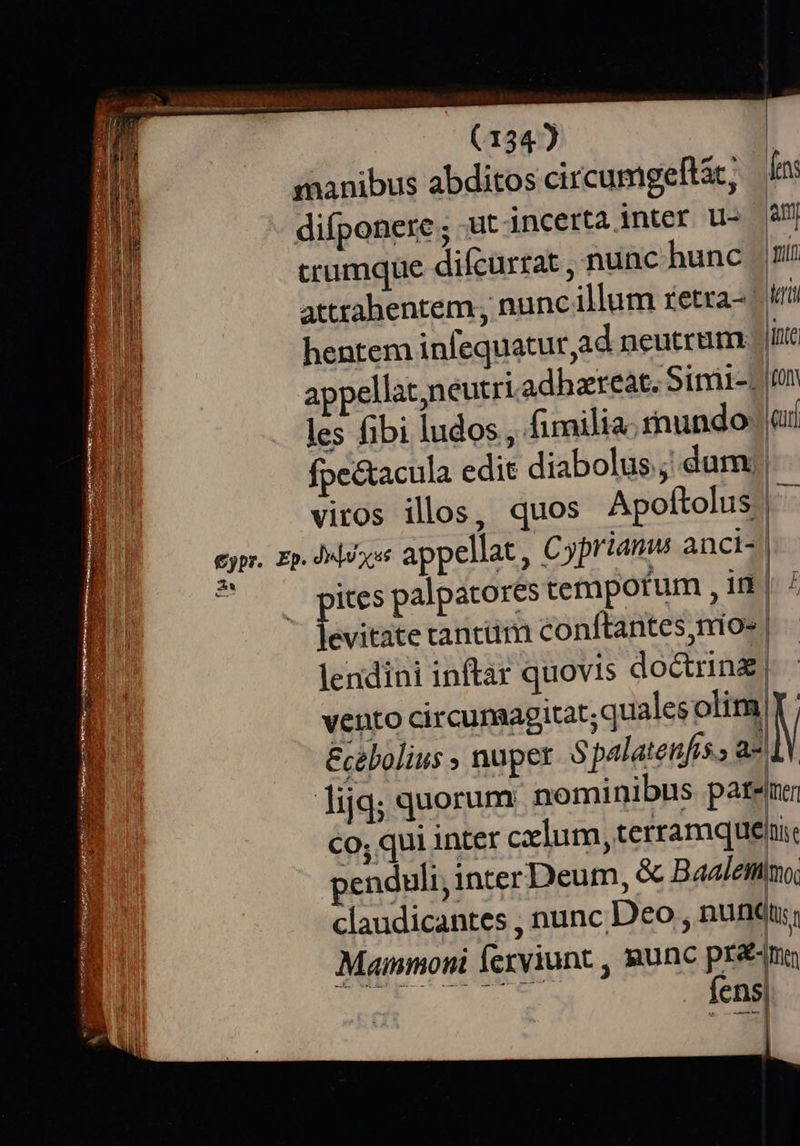 (134)
manibus abditos circumgeſtát;
diſponere; ut incerta inter u-
trumque diſcurrat, nunc hunc
attrahentem, nunc illum retra-
hentem inſequatur, ad neutrum
appellat, neutri adhæreat. Simi-
les ſibi ludos, ſimilia mundo
ſpectacula edit diabolus, dum
viros illos, quos Apoſtolus
Cypr. Ep. διψύχȣς appellat, Cyprianus anci-
2. pites palpatores temporum, in
levitate tantùm conſtantes, mo-
lendini inſtar quovis doctrinæ
vento circumagitat; quales olim
Ecebolius, nuper Spalatenſis, a-
lijq; quorum nominibus par-
co; qui inter cælum, terramque
penduli, inter Deum, & Baalem
claudicantes, nunc Deo, nunc
Mammoni ſerviunt, nunc præ-
ſens